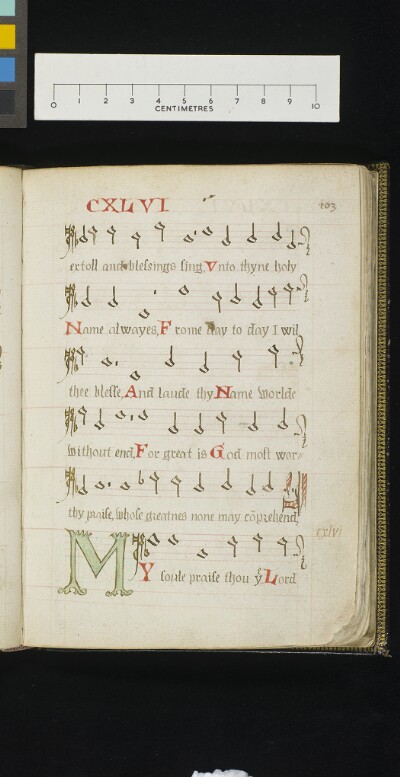 0 1 2 3 4 5 6 7 8 9 10
CENTIMETRES
CXLVI 103
extoll and blessings sing, Vnto thyne holy
Name alwayes, Frome day to day I wil
thee blesse, And laude thy Name worlde
without end, For great is God most wor-
thy praise, whose greatnes none may cõprehend,
cxlvi
MY soule praise thou yͤ Lord